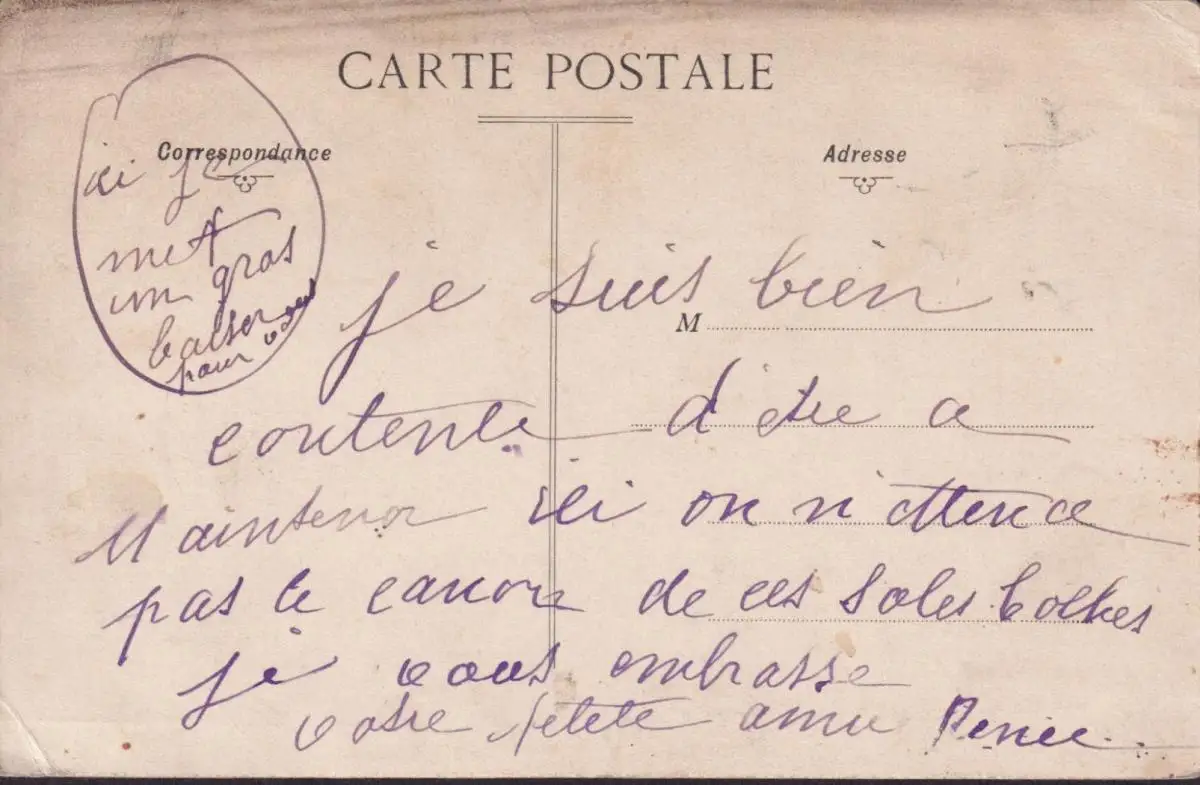 CARTE POSTALE
Correspondance
Adresse
ici je
met
un gros
baiser
pour vous
je suis bien
M
contente d etre a
Maintenon ici on n'attend
pas le canon de ces sales boches
je vous embrasse
votre petite amie Renée.